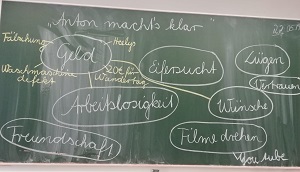 "Anton macht's klar"
Fälschung
Geld
Waschmaschine defekt
20€ für Wandertag
Eifersucht
Lügen
Vertrauen
Arbeitslosigkeit
Wünsche
Freundschaft
Filme drehen
You tube